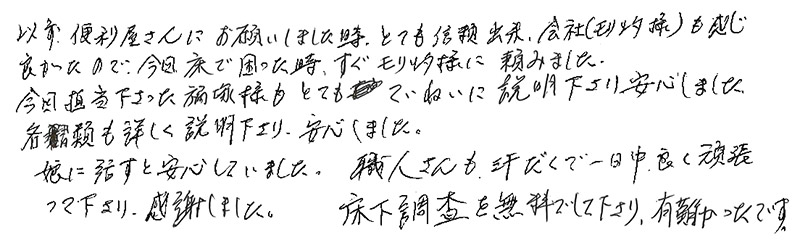 以前、便利屋さんにお願いしました時、とても信頼出来、会社(モリタ様)も感じ
良かったので、今回床で困った時、すぐモリタ様に頼みました。
今回担当下さった 様もとてもていねいに説明下さり安心しました
各 類も詳しく説明下さり、安心しました。
娘に話すと安心していました。 職人さんも、汗だくで一日中、良く頑張
って下さり、感謝しました。 床下調査を無料でして下さり、有難かったです